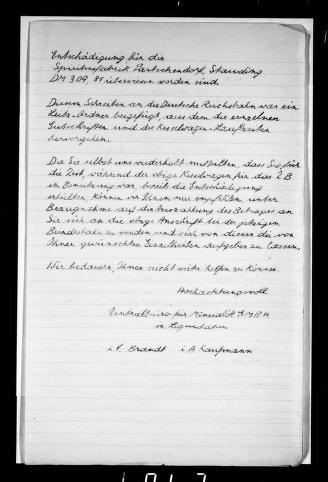 Entschädigung für die
Spiritusfabrik Partschendorf, Stauding
DM 309,81 überwiesen worden sind.
Diesem Schreiben an die Deutsche Reichsbahn war ein
Leitz-Ordner beigefügt, aus dem die einzelnen
Gutschriften und die Kesselwagen-Laufzeiten
hervorgehen.
Da Sie selbst uns wiederholt mitteilten, dass Sie für
die Zeit, während der obige Kesselwagen für das ZB
in Benutzung war, bereits die Entschädigung
erhielten, können wir Ihnen nur empfehlen, unter
Bezugnahme auf die Auszahlung des Betrages an
Sie sich an die obige Anschrift bei der jetzigen
Bundesbahn zu wenden und sich von dieser die von
Ihnen gewünschten Einzelheiten aufgeben zu lassen.
Wir bedauern, Ihnen nicht weiter helfen zu können
Hochachtungsvoll
Zentralbüro für Mineralöl G.M.B.H.
in Liquidation
i.V. Brandt i.A. Kaufmann